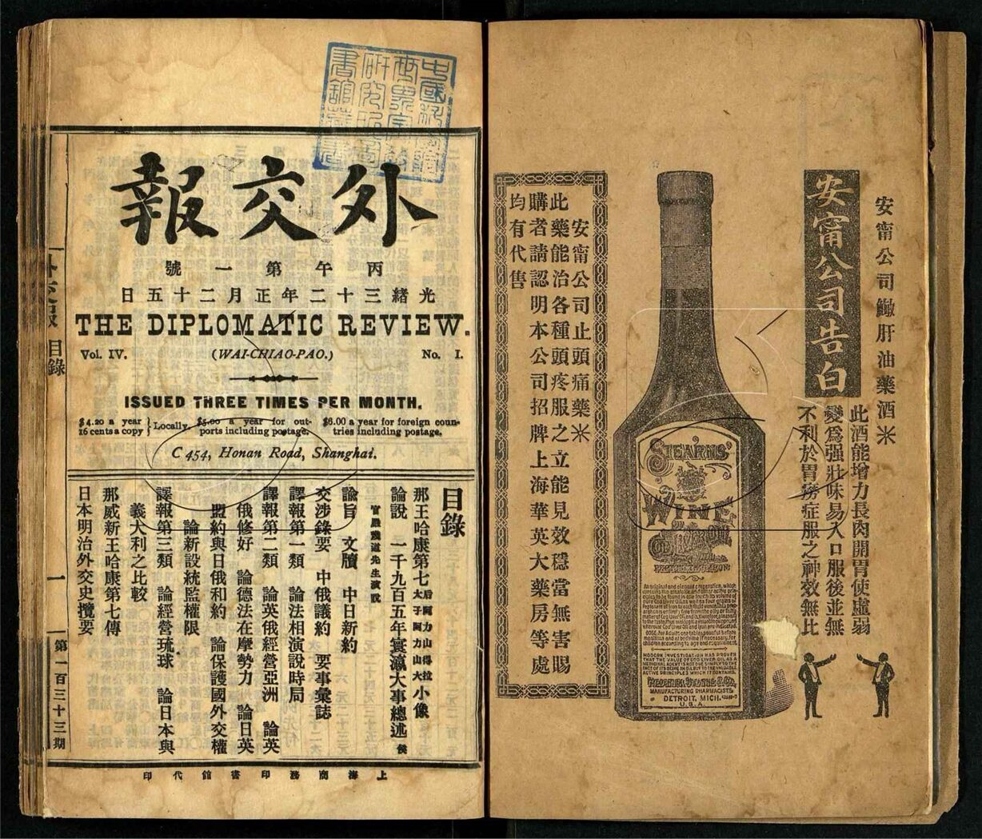 外交報
丙午第一號
光緒三十二年正月二十五日
THE DIPLOMATIC REVIEW.
Vol. IV.
(WAI-CHIAO-PAO.)
No. I.
ISSUED THREE TIMES PER MONTH.
$4.20 a year
16 cents a copy } Locally.
$5.00 a year for out-
ports including postage.
$6.00 a year for foreign coun-
tries including postage.
C 454, Honan Road, Shanghai.
目錄
那王哈康第七 后阿力山得拉 太子阿力山大 小像
論說 一千九百五年寰瀛大事總述
論旨 文牘 中日新約
交涉錄要 中俄議約 要事彙誌
譯報第一類 論法相演說時局
譯報第二類 論英俄經營亞洲 論英
俄修好 論德法在摩勢力 論日英
盟約與日俄和約 論保護國外交權
論新設統監權限
譯報第三類 論經營琉球 論日本與
義大利之比較
那威新王哈康第七傳
日本明治外交史攬要
上海商務印書館代印
目錄
一
第一百三十三期
安甯公司鰵肝油藥酒米
安甯公司告白
此酒能增力長肉開胃使虛弱
變爲強壯味易入口服後並無
不利於胃癆症服之神效無比
安甯公司止頭痛藥米
此藥能治各種頭疼服之立能見效穩當無害賜
購者請認明本公司招牌上海華英大藥房等處
均有代售
STEARNS'
WINE
OF
COD LIVER OIL
MANUFACTURING PHARMACISTS
DETROIT, MICH.
U.S.A.